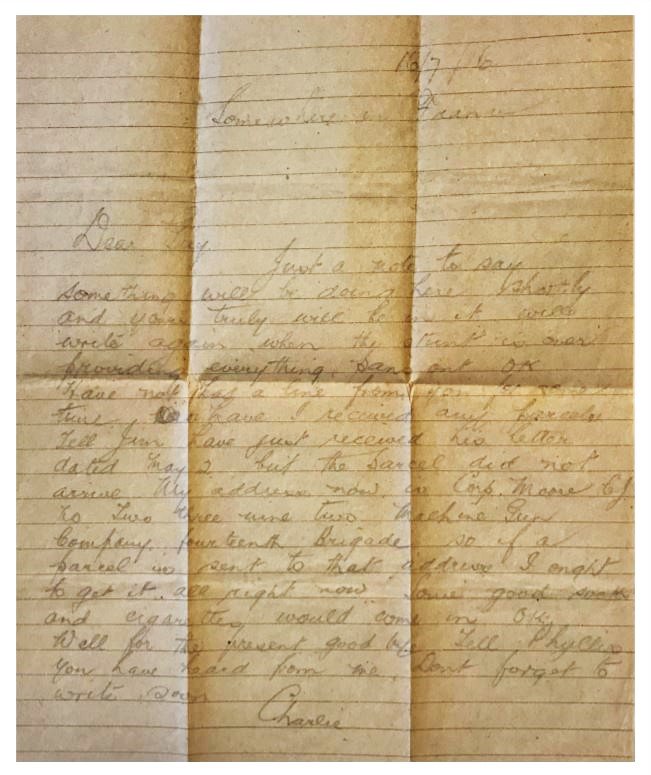 16/7/16
Somewhere in France
Dear
Just a note to say
something will be doing here shortly
and yours truly will be in it will
write again when the stunt is over
providing everything pans out OK
have not had a line from you for some
time have I received any parcels
Tell Jim have just received his letter
dated May 2 but the parcel did not
arrive My address now is Corp. Moore CJ
No Two three nine two Machine Gun
Company fourteenth Brigade so if a
parcel is sent to that address I ought
to get it all right now some good socks
and cigarettes would come in OK
Well for the present good bye Tell Phyllis
you have heard from me. Dont forget to
write soon
Charlie